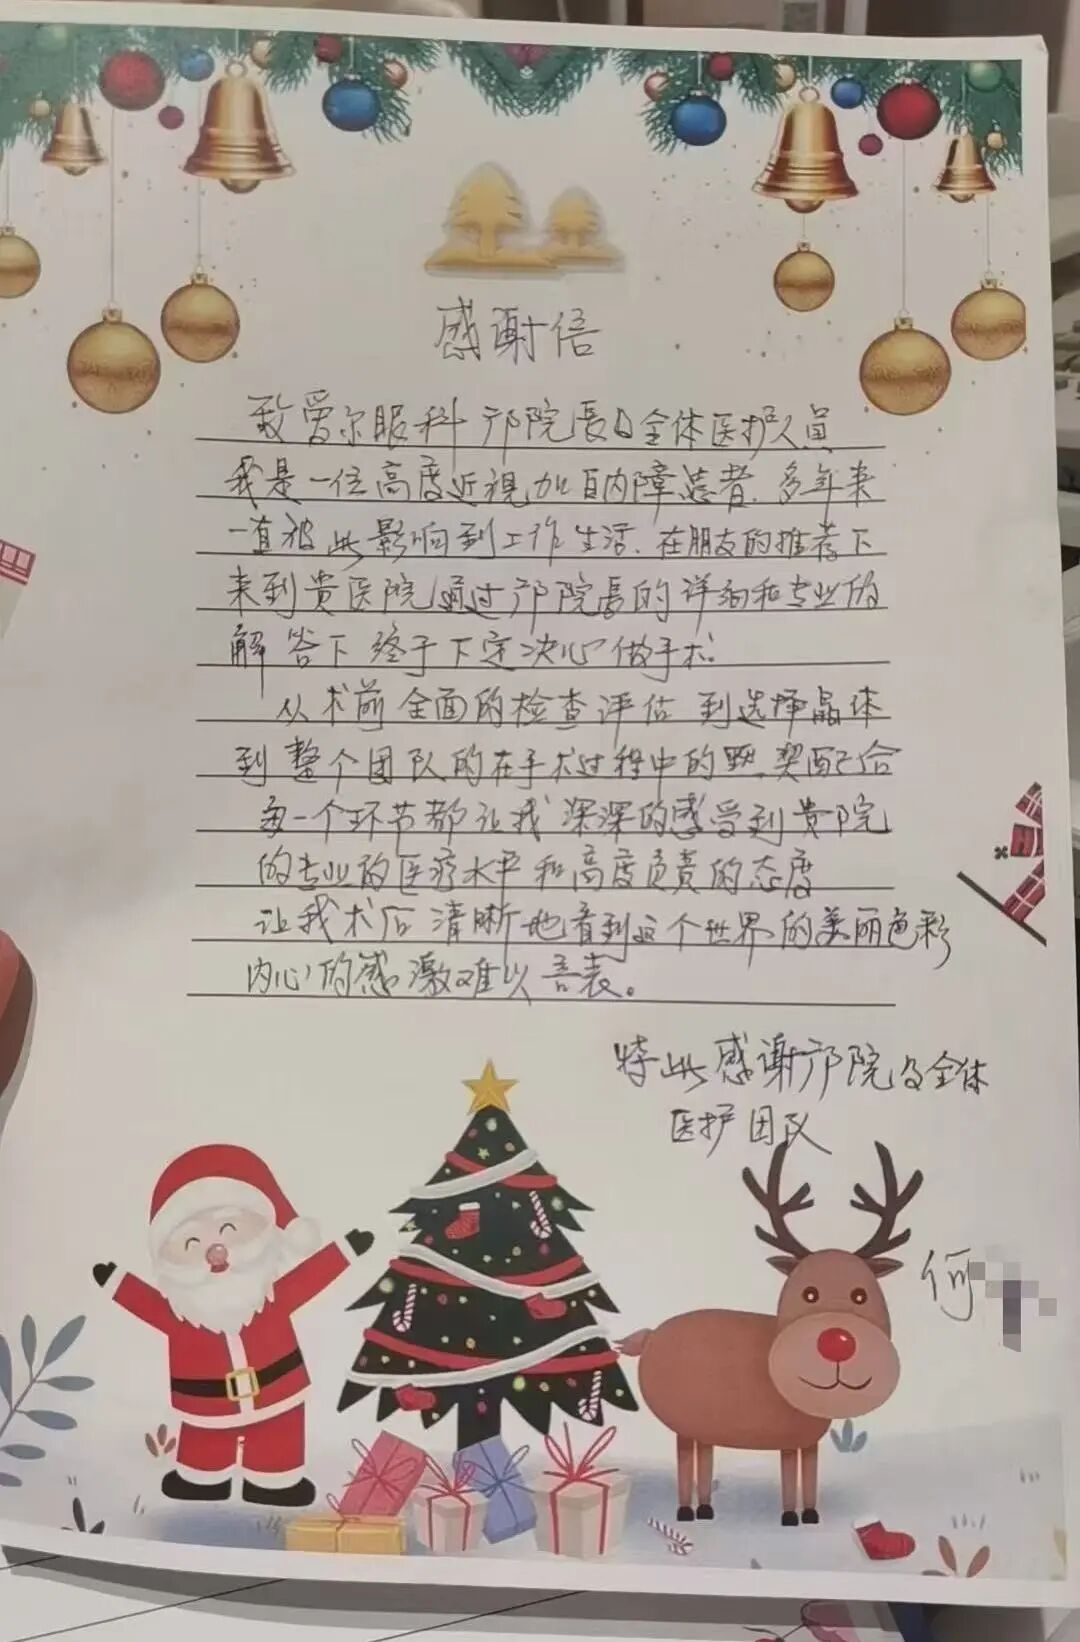 感谢信
致爱尔眼科邝院长及全体医护人员
我是一位高度近视加白内障患者.多年来
一直被此影响到工作生活.在朋友的推荐下
来到贵医院通过邝院长的详细和专业的
解答下终于下定决心做手术.
从术前全面的检查评估到选择晶体
到整个团队的在手术过程中的默契配合
每一个环节都让我深深的感受到贵院
的专业的医疗水平和高度负责的态度
让我术后清晰地看到这个世界的美丽色彩
内心的感激难以言表。
特此感谢邝院及全体
医护团队
何